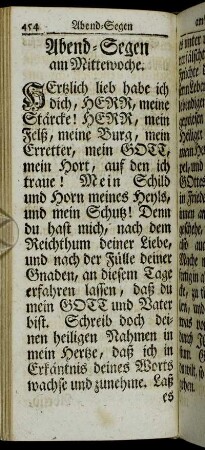 454 Abend-Segen
Abend-Segen
am Mittewoche.
HErtzlich lieb habe ich
dich, HERR, meine
Stärcke! HERR, mein
Felß, meine Burg, mein
Erretter, mein GOTT,
mein Hort, auf den ich
traue! Mein Schild
und Horn meines Heyls,
und mein Schutz! Denn
du hast mich, nach dem
Reichthum deiner Liebe,
und nach der Fülle deiner
Gnaden, an diesem Tage
erfahren lassen, daß du
mein GOTT und Vater
bist. Schreib doch dei-
nen heiligen Nahmen in
mein Hertze, daß ich in
Erkäntnis deines Worts
wachse und zunehme. Laß
es